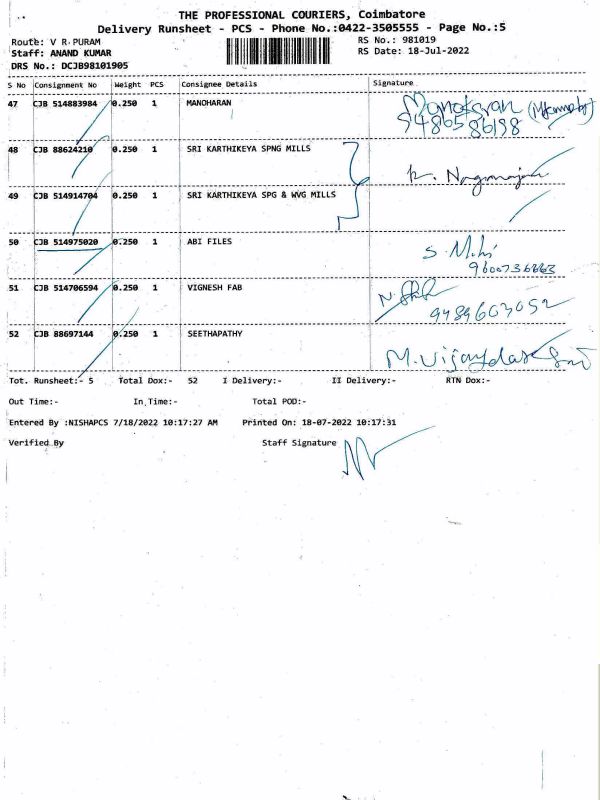 THE PROFESSIONAL COURIERS, Coimbatore
Delivery Runsheet - PCS - Phone No.:0422-3505555 - Page No.:5
Route: V R PURAM RS No.: 981019
Staff: ANAND KUMAR RS Date: 18-Jul-2022
DRS No.: DCJB98101905
S No Consignment No Weight PCS Consignee Details Signature
47 CJB 514883984 0.250 1 MANOHARAN Manoharan
9486586198
48 CJB 88624210 0.250 1 SRI KARTHIKEYA SPNG MILLS
K. Nagamajan
49 CJB 514914704 0.250 1 SRI KARTHIKEYA SPG & WVG MILLS
50 CJB 514975020 0.250 1 ABI FILES S. Mohi
9600736663
51 CJB 514706594 0.250 1 VIGNESH FAB
9489603052
52 CJB 88697144 0.250 1 SEETHAPATHY
M. Vijaydas
Tot. Runsheet:- 5 Total Dox:- 52 I Delivery:- II Delivery:- RTN Dox:-
Out Time:- In Time:- Total POD:-
Entered By :NISHAPCS 7/18/2022 10:17:27 AM Printed On: 18-07-2022 10:17:31
Verified By Staff Signature